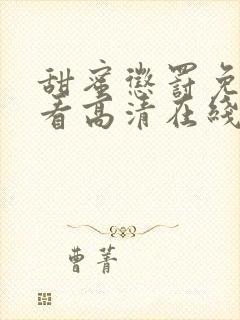 甜蜜懲罰免
看高清在綫
曹菁